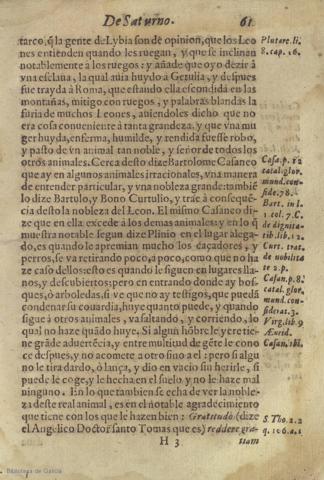 De Saturno. 61
tarco, q̃ la gente de Lybia son de opinion, que los Leo
nes entienden quando les ruegan, y que se inclinan
notablemente a los ruegos: y añade que oyo dezir à
vna esclaua, la qual auia huydo a Getulia, y despues
fue trayda à Roma, que estando ella escondida en las
montañas, mitigo con ruegos, y palabras blandas la
furia de muchos Leones, auiendoles dicho que no
era cosa conueniente à tanta grandeza. y que vna mu
ger huyda, enferma, humilde, y rendida fuesse robo,
y pasto de vn animal tan noble, y señor de todos los
otros animales. Cerca desto dize Bartolome Casaneo
que ay en algunos animales irracionales, vna manera
de entender particular, y vna nobleza grande: tambiẽ
lo dize Bartulo, y Bono Curtulio, y trae à consequẽ
cia desto la nobleza del Leon. El mismo Casaneo di-
ze que en ella excede a los demas animales: y en lo q̃
muestra notable segun dize Plinio en el lugar alega-
do, es quando le apremian mucho los caçadores, y
perros, se va retirando poco, a poco, como que no ha
ze caso dellos: esto es quando le siguen en lugares lla-
nos, y descubiertos: pero en entrando donde ay bos-
ques, ò arboledas, si ve que no ay testigos, que pueda
condenar su couardia, huye quanto puede, y quando
sigue à otros animales, va saltando, y corriendo, lo
qual no haze quãdo huye. Si algun hõbre le yere tie-
ne grãde aduertẽcia, y entre multitud de gẽte le cono
ce despues, y no acomete a otro sino a el: pero si algu
no le tira dardo, ò lança, y dio en vacio sin herirle, si
puede le coge, y le hecha en el suelo y no le haze mal
ninguno. En lo que tambien se echa de ver la noble-
za deste real animal, es en el notable agradecimiento
que tiene con los que le hazen bien: Gratitudo (dize
el Angelico Doctor santo Tomas que es) reddere gra-
H 3 tiam
Plutarc. li.
8. cap. 16.
Casa. p. 12
catal. glor.
mund. con-
side. 78.
Bart. in l.
1 col. 7. C.
de dignita-
tib. lib. 12
Curt. trat.
de nobilita
te 2. p.
Casan. p. 8.
catal. glor.
mund. con-
siderat. 3.
Virg. lib. 9
Æneid.
Casan. ibi.
S Tho. 2. 2
q. 106. a. 1
Biblioteca de Galicia